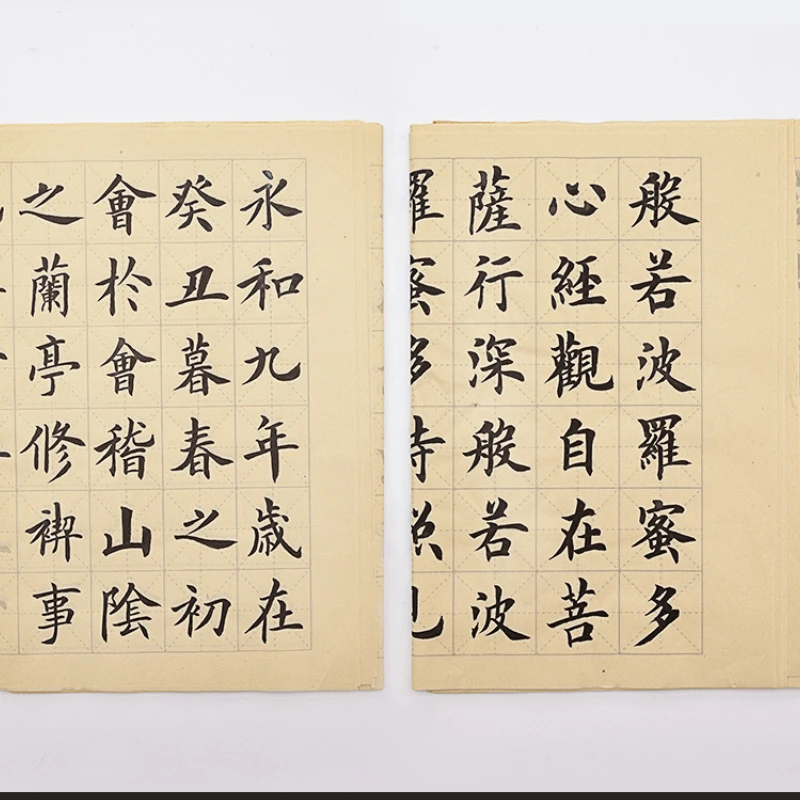 永和九年歲在
癸丑暮春之初
會於會稽山陰
之蘭亭修禊事
般若波羅蜜多
心經觀自在菩
薩行深般若波
羅蜜多時照見